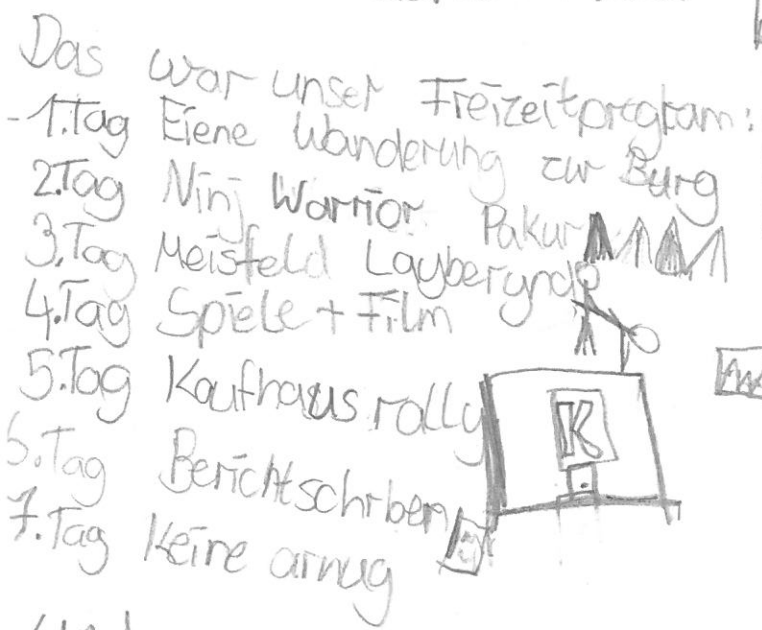 Das war unser Freizeitprogram:
-1.Tag Eiene Wanderung zur Burg
2.Tag Ninj Warrior Pakur
3.Tag Meisfeld Layberynd
4.Tag Spiele + Film
5.Tag Kaufhausrally
6.Tag Berichtschriben
7.Tag Keine arnug
K